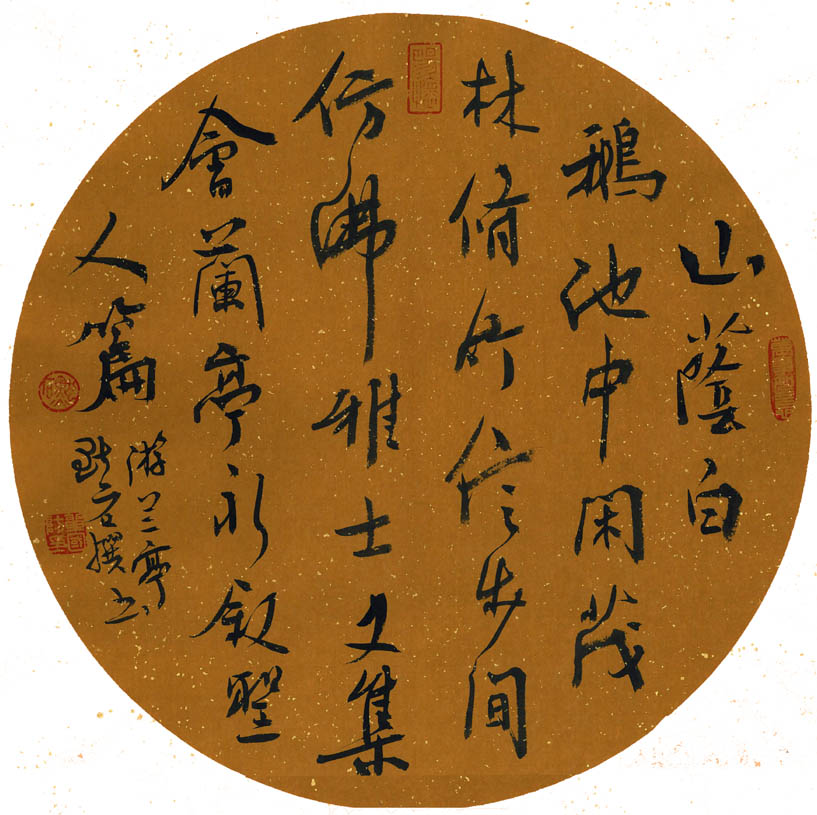 山蔭白
鵝池中閑茂
林脩竹信步间
仿佛雅士又集
會蘭亭永叙聖
人篇
游兰亭
撰书